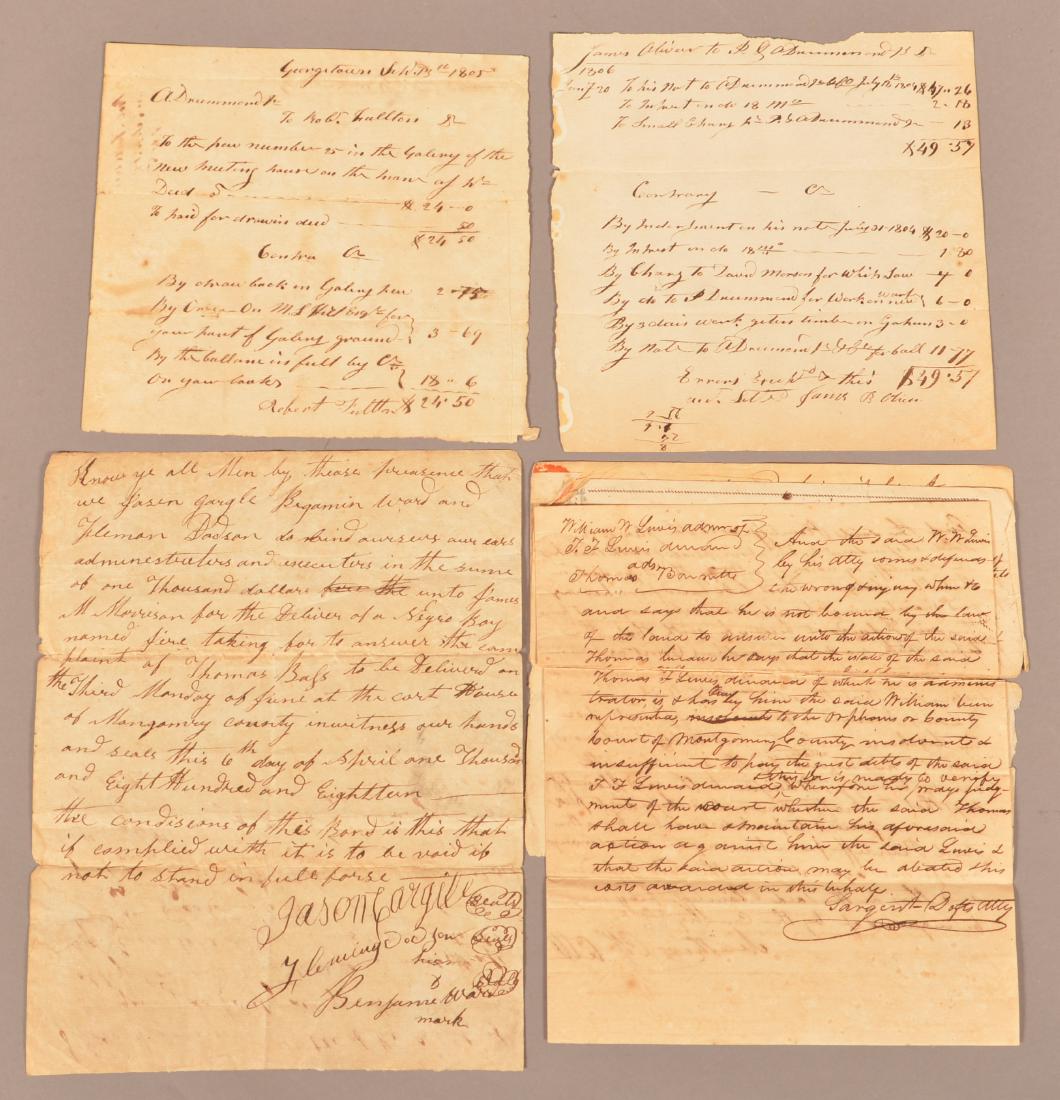 Georgetown Sept 13th 1805
A Drummond Jr
To Robt Fullton Dr
To the pew number 25 in the Galery of the
New meeting house on the
Deed $ 24-0
To paid for drawin deed 50
$ 24 50
Contra Cr
By draw back in Galery pew 2-75
By Order On M L Hill Esqr for
your part of Galery ground 3-69
By the ballance in full by Cr
On your books 18"6
Robert Fullton $ 24.50
James Oliver to P & A Drummond Jr Dr
1806
Jany 20 To his Not to A Drummond Jr & Co July 1804 $47"26
To Intrest on do 18 Mo 2-18
To Small Charg to P & A Drummond Jr 13
$49.57
Contrary Cr
By Indorsment on his note July 21 1804 $20-0
By Intrest on do 18 mo 1-80
By Charg to David Morson for Whip Saw 4-0
By do to P Drummond for Work on new 6-0
By 3 dais work geten timber 3-0
By Note to A Drummond Jr & Co for ball 11-77
$49.57
Errors Excepted this
acc Setd James B Oliver
Know ye all Men by thease preasence that
we Jasen gargle Begamin Ward and
Fleman Dodson do bind oursevs our ears
admenestrators and executers in the sume
of one Thousand dollars unto James
M Morrison for the Deliver of a Negro Boy
named fire taking for to answer the com
plaint of Thomas Bass to be Deliverd on
the Third Monday of June at the cort House
of Mongomry county in witness our hands
and seals this 6th day of April one Thousand
and Eight Hundred and Eighteen
the condisions of this Bond is this that
if complied with it is to be void if
not to stand in full forse
Jason Cargile Seal
Fleming Dodson Seal
his
Benjamin Ward Seal
mark
William W Lewis admr of
T. F. Lewis deceased
ads
Thomas Bonnette
And the said W. W. Lewis
by his atty comes & defends
the wrong & injury when &c
and says that he is not bound by the law
of the land to answer unto the action of the said
Thomas because he says that the estate of the said
Thomas F Lewis deceased of which he is adminis
trator, is & has by him the said William been
represented to the Orphans or County
Court of Montgomery County insolvent &
insufficient to pay the just debts of the said
T. F Lewis deceased & this he is ready to verify
wherefore he prays judg-
ment of the court whether the said Thomas
shall have & maintain his aforesaid
action against him the said Lewis &
that the said action may be abated & his
costs awarded in this behalf.
Sargent Atty